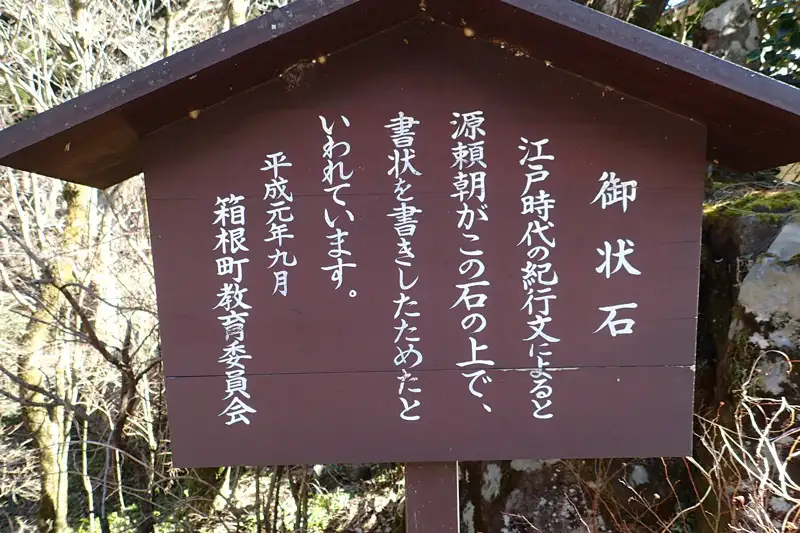 御状石
江戸時代の紀行文によると
源頼朝がこの石の上で、
書状を書きしたためたと
いわれています。
平成元年九月
箱根町教育委員会